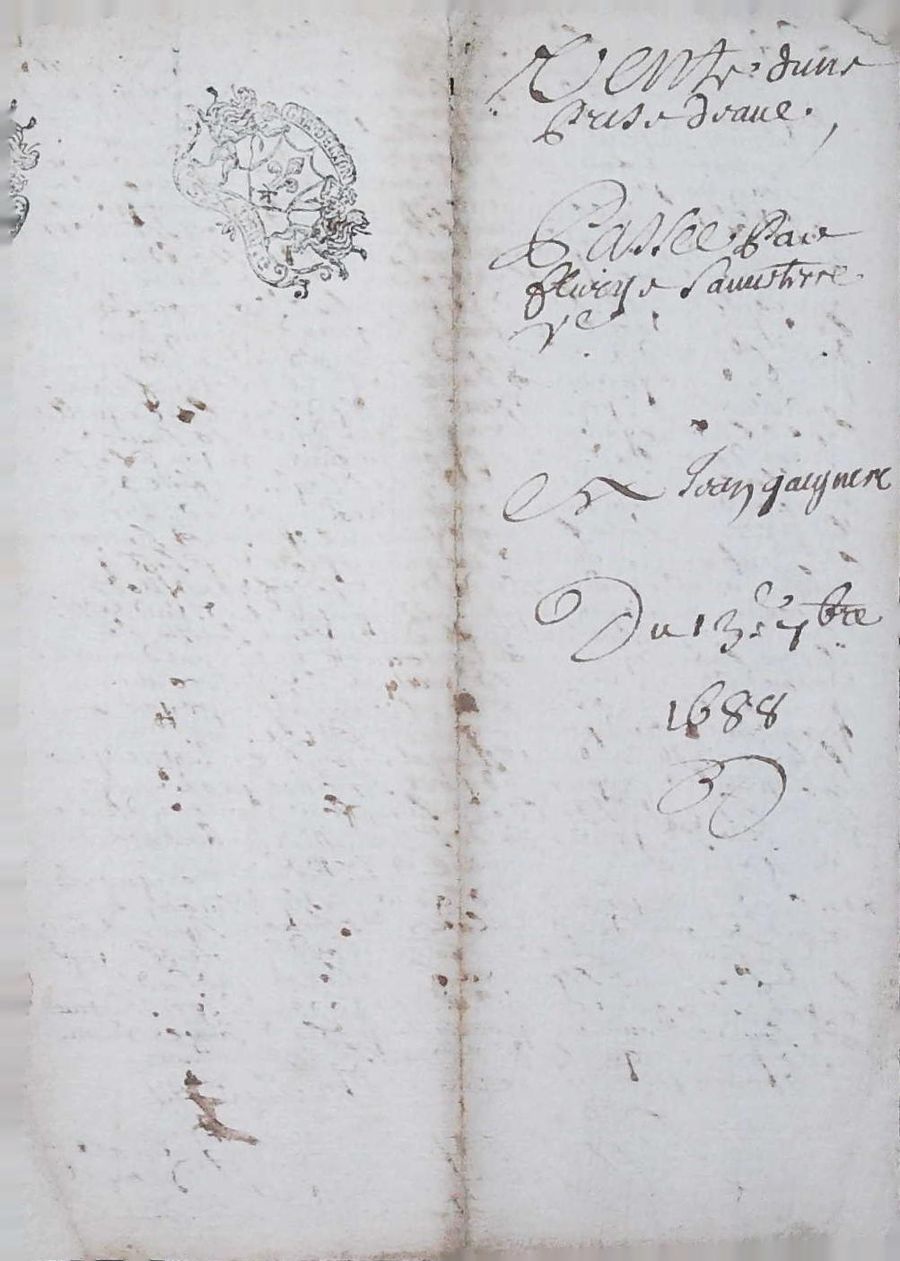 Vente dune
Prise deaue.
Passée Par
fleurye
ve
A Jean gaignere
Du 13e 7bre
1688